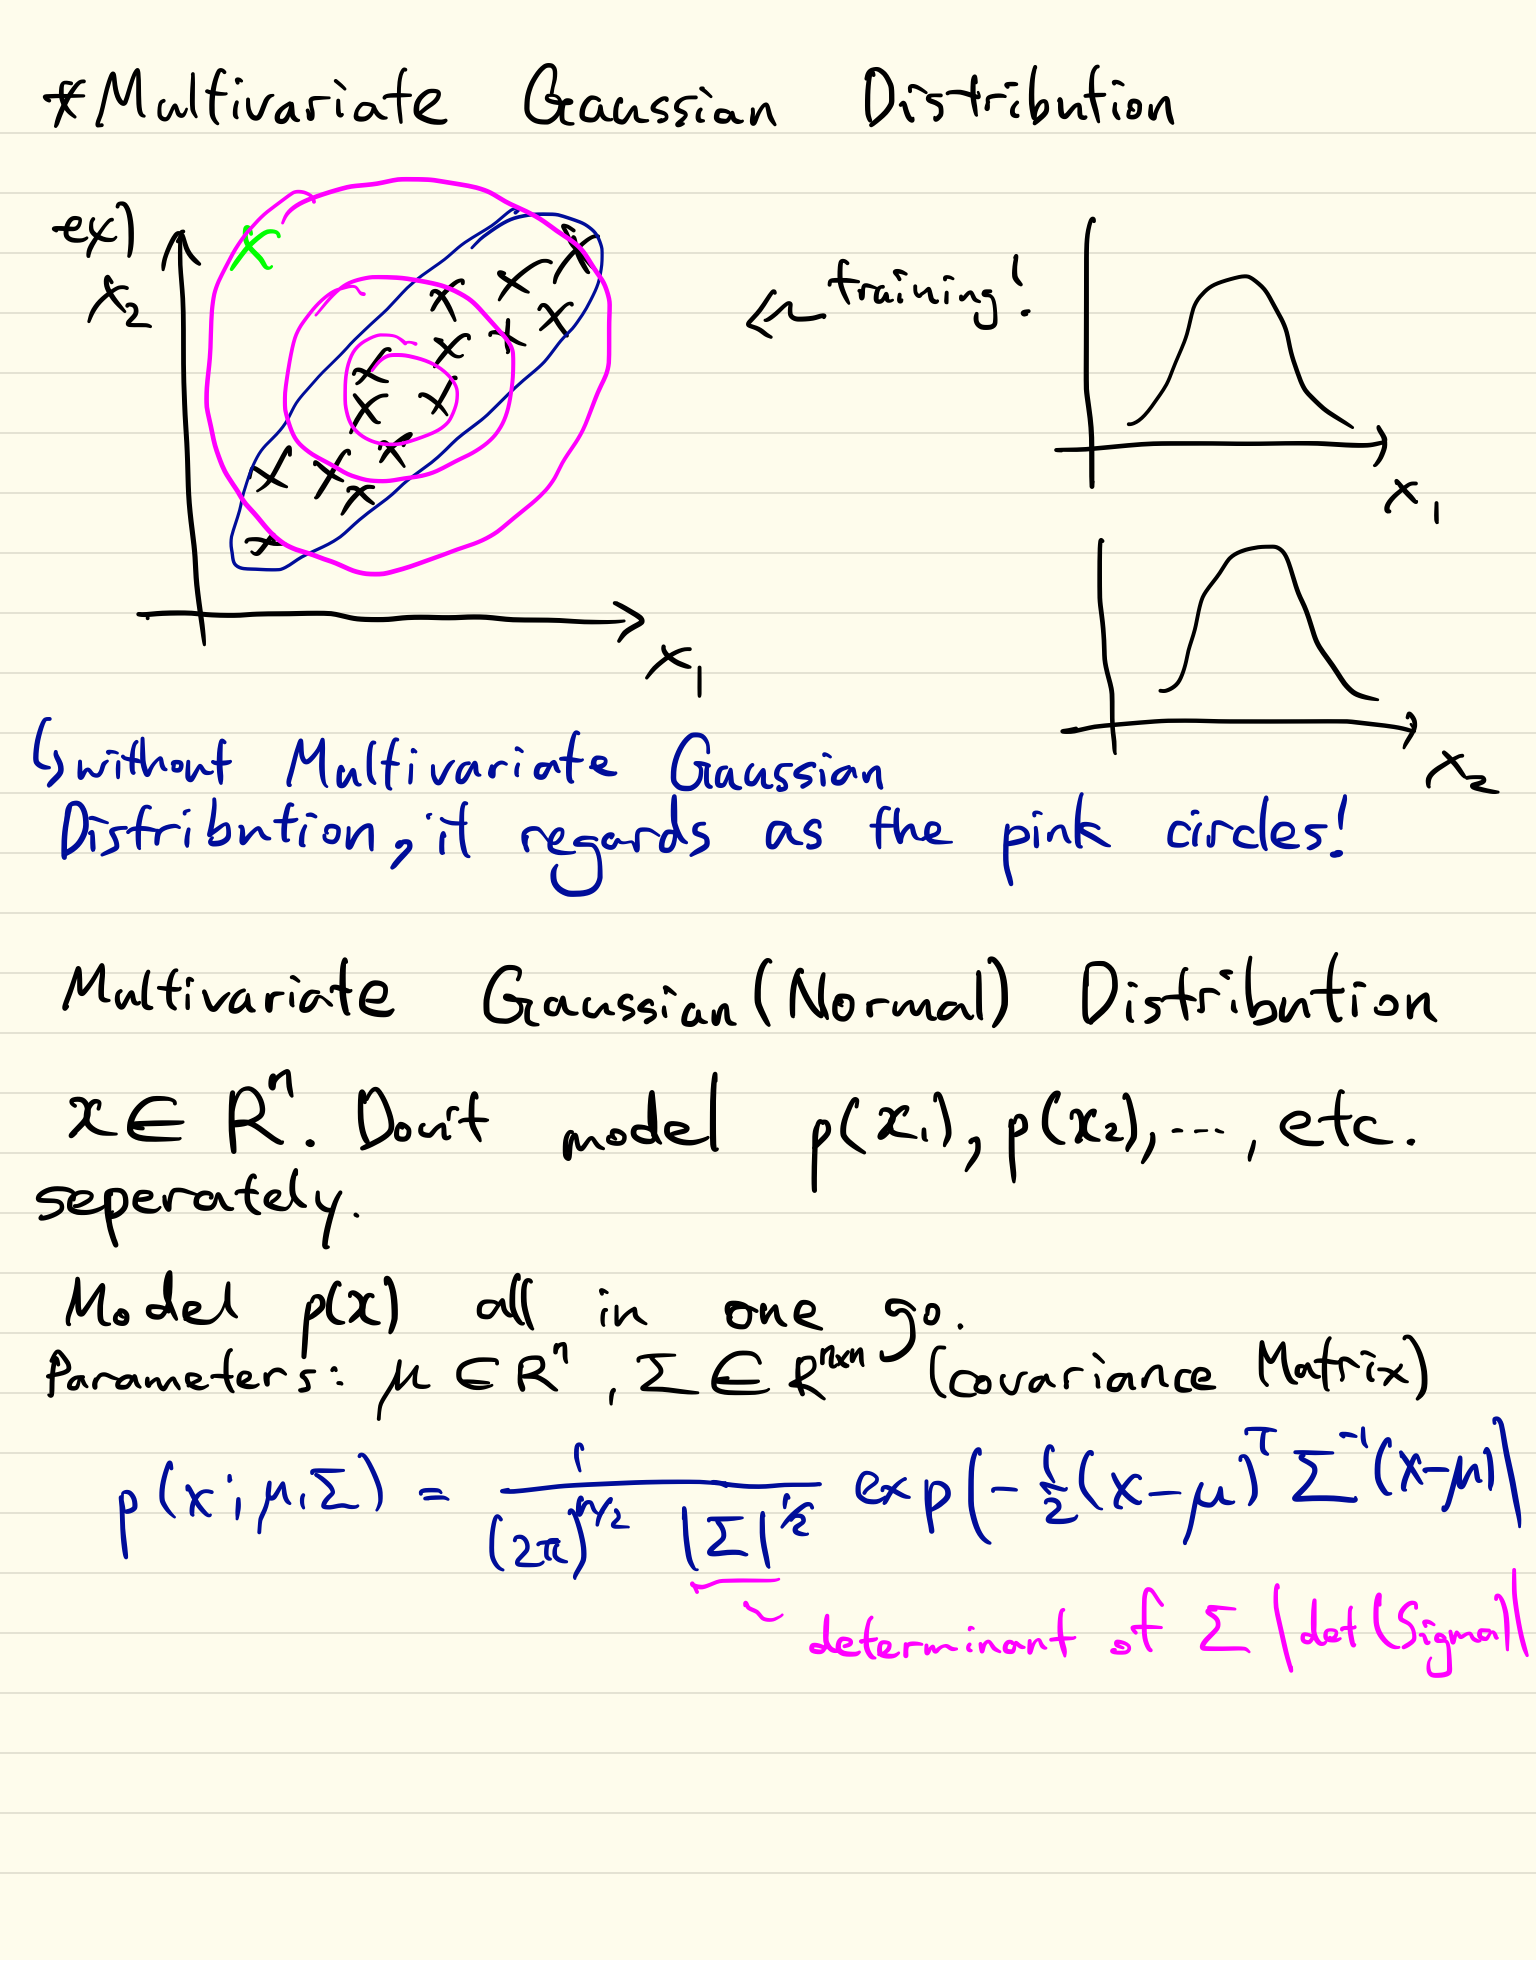 *Multivariate Gaussian Distribution
ex)
x₂
← training!
x₁
x₁
x₂
↳ without Multivariate Gaussian
Distribution, it regards as the pink circles!
Multivariate Gaussian (Normal) Distribution
x ∈ Rⁿ. Don't model p(x₁), p(x₂), ..., etc.
seperately.
Model p(x) all in one go.
Parameters: μ ∈ Rⁿ, Σ ∈ Rⁿˣⁿ (covariance Matrix)
p(x; μ, Σ) = 1 / ((2π)^(n/2) |Σ|^(1/2)) exp(-1/2 (x-μ)^T Σ^(-1) (x-μ))
determinant of Σ (det(Sigma))